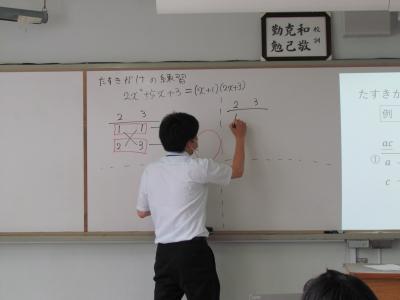 校訓
和敬
克己
勤勉
たすきがけの練習
2x²+5x+3=(x+1)(2x+3)
2 3
1 1
2 3
2 3
1
たすきが
例
ac
① a
c